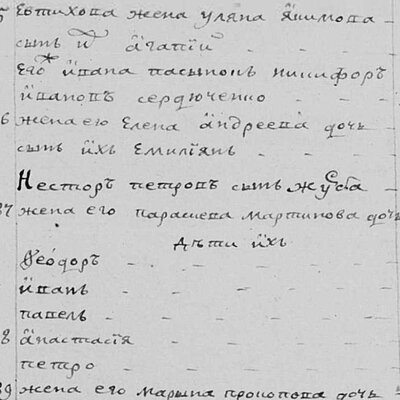 5 Евтихова жена уляна Якимова
сынъ агапiй
Его ивана пасынокъ никифоръ
ивановъ сердюченко
6 жена его Елена андреева дочь
сынъ ихъ Емилiянъ
Несторъ петровъ сынъ
37 жена его параскева мартинова дочь
дѣти ихъ
Ѳеодоръ
иванъ
павелъ
8 анастасiя
петро
39 жена его марына прокопова дочь